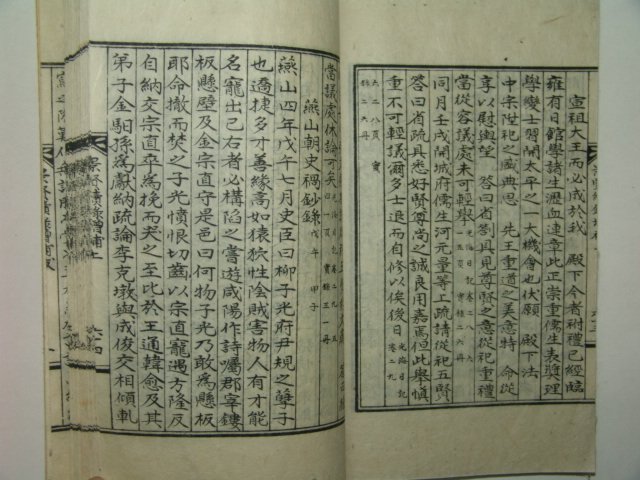 宣祖大王而必成於我　殿下今者祔禮已經臨
雍有日館學諸生瀝血連章此正崇重儒生表奬理
學變士習開太平之一大機會也伏願　殿下法
中宗陞祀之盛典思　先王重道之美意特　命從
享以慰輿望　答曰省劄具見尊賢之意從祀重禮
當從容議處未可輕擧
同月壬戌開城府儒生河元量等上疏請從祀五賢
答曰省疏具悉好賢尊尚之誠良用嘉焉但此擧愼
重不可輕議爾多士退而自修以俟後日
當議處休論可矣
燕山朝史禍鈔錄 戊午 甲子
燕山四年戊午七月史臣曰柳子光府尹規之孼子
也驕捷多才善緣高如猿狖性陰賊害物人有才能
名寵出己右者必構陷之嘗遊咸陽作詩囑郡宰鏤
板懸壁及金宗直守是邑曰何物子光乃敢爲懸板
耶命撤而焚之子光憤恨切齒以宗直寵遇方隆反
自納交宗直卒爲挽而哭之至比於王通韓愈及其
弟子金馹孫爲獻納疏論李克墩與成俊交相傾軋